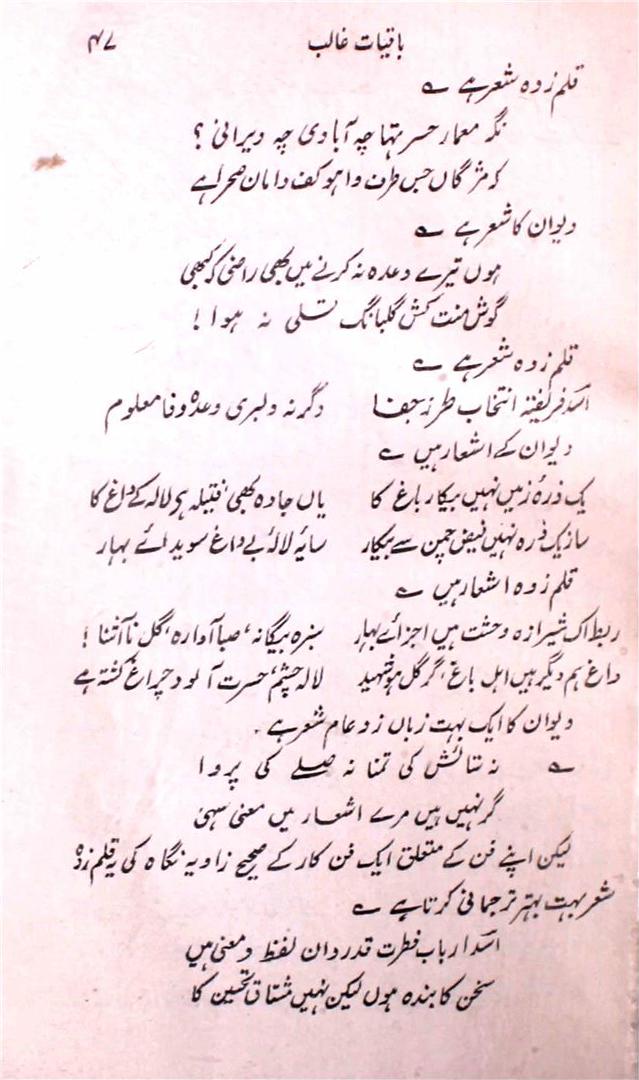 باقیات غالب ۴۷
قلم زدہ شعر ہے ؎
نگہ معمار حسرتہا چہ آبادی چہ ویرانی ؟
کہ مژگاں جس طرف وا ہو بکف دامان صحرا ہے
دیوان کا شعر ہے ؎
ہوں تیرے وعدہ نہ کرنے میں بھی راضی کہ کبھی
گوش منت کش گلبانگ تسلی نہ ہوا !
قلم زدہ شعر ہے ؎
اسد فریفتہ انتخاب طرز جفا دگرنہ دلبری وعدہ وفا معلوم
دیوان کے اشعار ہیں ؎
یک ذرۂ زمیں نہیں بیکار باغ کا یاں جادہ بھی فتیلہ ہے لالہ کے داغ کا
ساز یک ذرہ نہیں فیض چمن سے بیکار سایۂ لالۂ بے داغ سویدائے بہار
قلم زدہ اشعار ہیں ؎
ربط اک شیرازہ وحشت ہیں اجزائے بہار سبزہ بیگانہ، صبا آوارہ، گل ناآشنا !
داغ ہم دیگر ہیں اہل باغ، گر گل ہو شہید لالہ چشم حسرت آلود چراغ کشتہ ہے
دیوان کا ایک بہت زباں زد عام شعر ہے .
؎ نہ ستائش کی تمنا نہ صلے کی پروا
گر نہیں ہیں مرے اشعار میں معنی نہ سہی
لیکن اپنے فن کے متعلق ایک فن کار کے صحیح زاویہ نگاہ کی یہ قلم زدہ
شعر بہت بہتر ترجمانی کرتا ہے ؎
اسد ارباب فطرت قدردان لفظ و معنی ہیں
سخن کا بندہ ہوں لیکن نہیں مشتاق تحسین کا